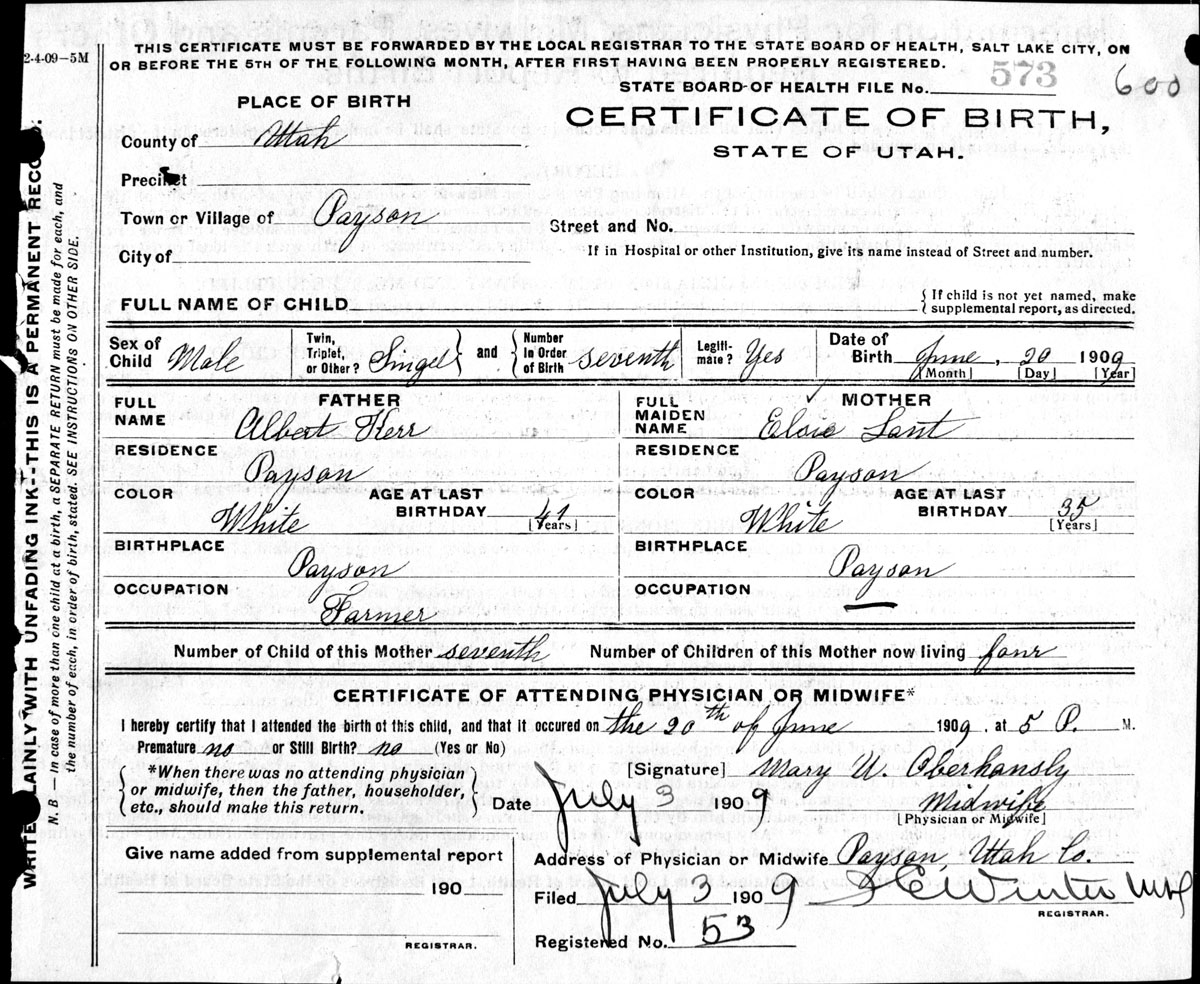 2-4-09-5M
THIS CERTIFICATE MUST BE FORWARDED BY THE LOCAL REGISTRAR TO THE STATE BOARD OF HEALTH, SALT LAKE CITY, ON
OR BEFORE THE 5TH OF THE FOLLOWING MONTH, AFTER FIRST HAVING BEEN PROPERLY REGISTERED.
STATE BOARD OF HEALTH FILE No. 573
600
PLACE OF BIRTH
CERTIFICATE OF BIRTH,
STATE OF UTAH.
County of Utah
Precinct
Town or Village of Payson
Street and No.
City of
If in Hospital or other Institution, give its name instead of Street and number.
FULL NAME OF CHILD
{ If child is not yet named, make
supplemental report, as directed.
Sex of
Child Male
Twin,
Triplet,
or Other? Singel
and
Number
in Order
of Birth seventh
Legiti-
mate? Yes
Date of
Birth June, 20 1909
[Month] [Day] [Year]
FATHER
FULL
NAME Albert Kerr
MOTHER
FULL
MAIDEN
NAME Elsie Lant
RESIDENCE
Payson
RESIDENCE
Payson
COLOR
White
AGE AT LAST
BIRTHDAY 41
[Years]
COLOR
White
AGE AT LAST
BIRTHDAY 35
[Years]
BIRTHPLACE
Payson
BIRTHPLACE
Payson
OCCUPATION
Farmer
OCCUPATION
Number of Child of this Mother seventh Number of Children of this Mother now living four
CERTIFICATE OF ATTENDING PHYSICIAN OR MIDWIFE*
I hereby certify that I attended the birth of this child, and that it occured on the 20th of June 1909. at 5 P. M.
Premature no or Still Birth? no (Yes or No)
*When there was no attending physician
or midwife, then the father, householder,
etc., should make this return.
[Signature] Mary U. Oberhansly
Date July 3 1909
Midwife
[Physician or Midwife]
Give name added from supplemental report
190
REGISTRAR.
Address of Physician or Midwife Payson, Utah Co.
Filed July 3 1909 Winter
REGISTRAR.
Registered No. 53
N. B.—In case of more than one child at a birth, a SEPARATE RETURN must be made for each, and
the number of each, in order of birth, stated. SEE INSTRUCTIONS ON OTHER SIDE.
WRITE LAINLY WITH UNFADING INK--THIS IS A PERMANENT RECO